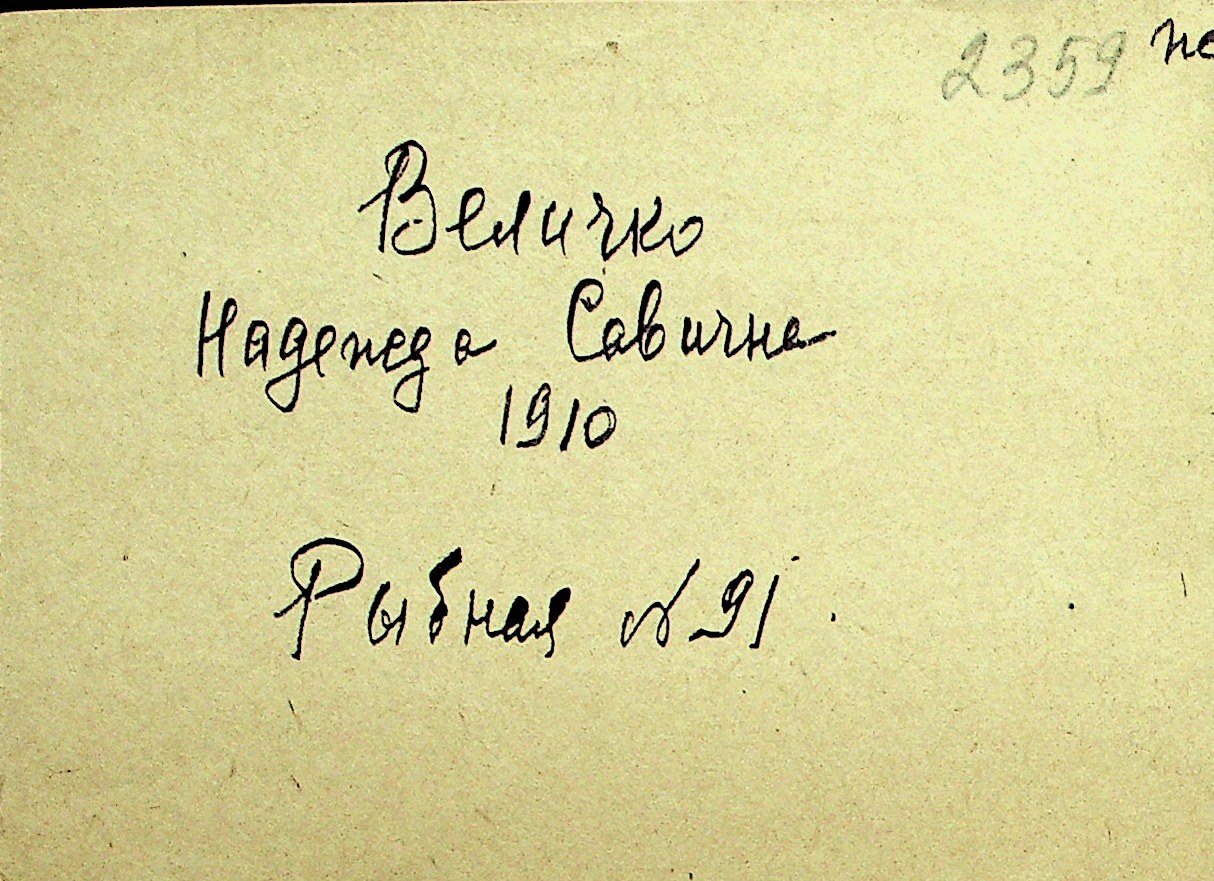 2359
Величко
Надежда Савична
1910
Рыбная №91.